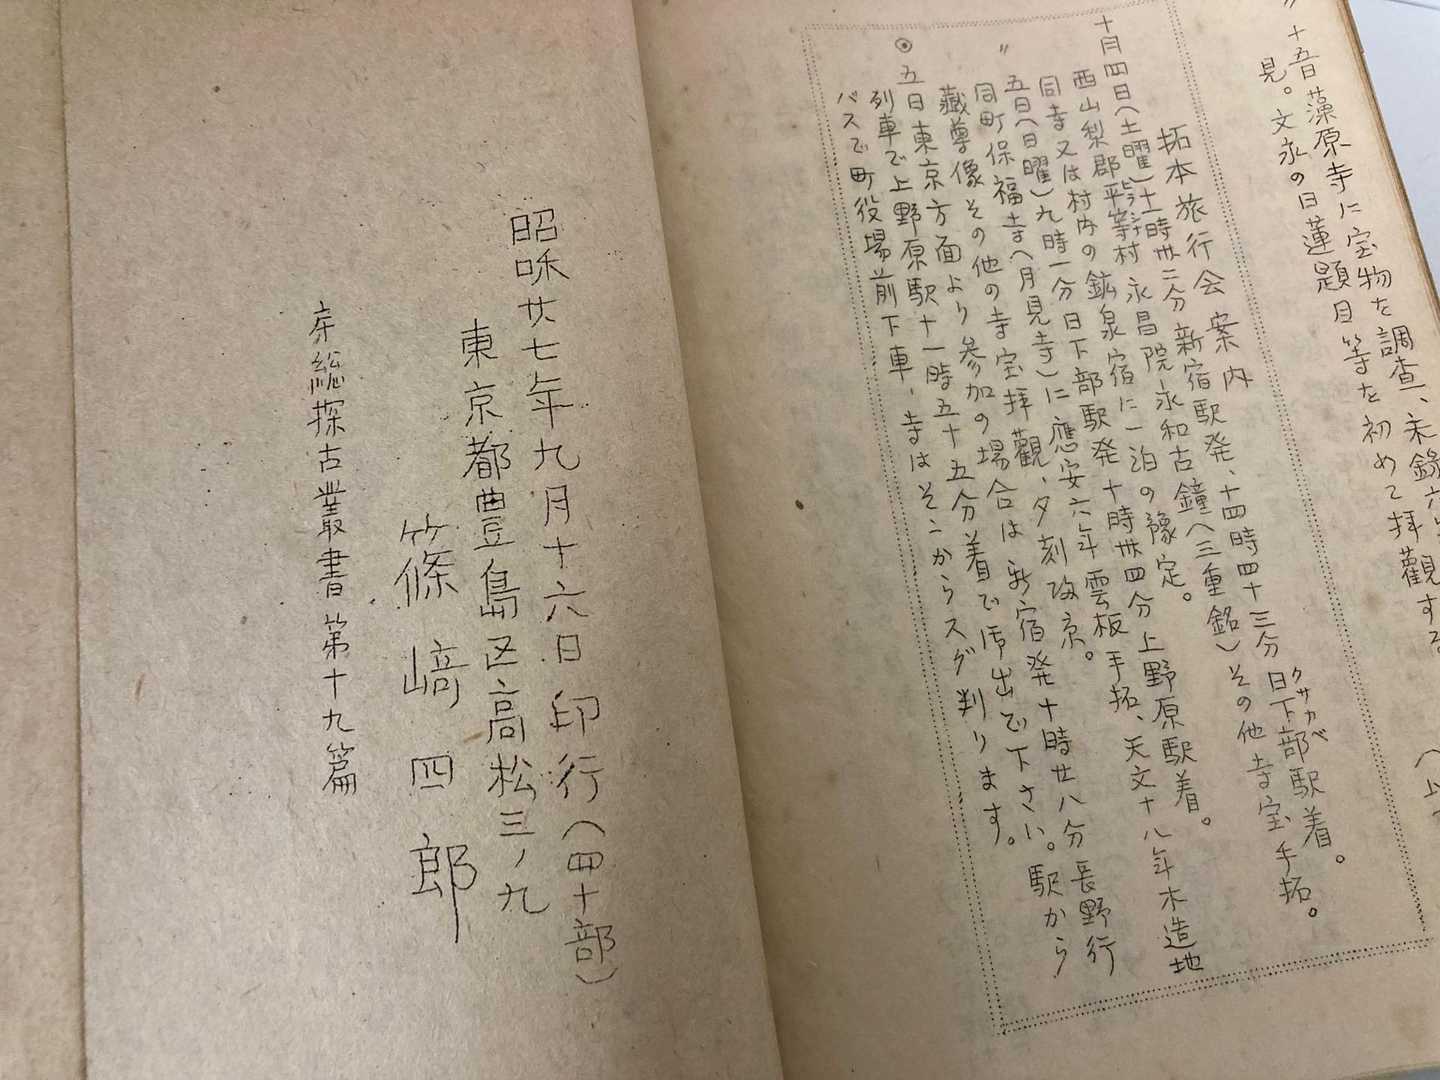 〃十五日藻原寺に宝物を調査、未録六
見。文永の日蓮題目等を初めて拝観する
拓本旅行会案内
十月四日(土曜)十一時卅二分新宿駅発、十四時四十三分日下部駅着。
クサカベ
西山梨郡平等村永昌院永和古鐘(三重銘)その他寺宝手拓。
同寺又は村内の鉱泉宿に一泊の豫定。
〃五日(日曜)九時一分日下部駅発十時卅四分上野原駅着。
同町保福寺(月見寺)に應安六年雲板手拓、天文十八年木造地
藏尊像その他の寺宝拝觀、夕刻攻京。
◉五日東京方面より参加の場合は新宿発十時廿八分長野行
列車で上野原駅十一時五十五分着で御出で下さい。駅から
バスで町役場前下車、寺はそこからスグ判ります。
昭和廿七年九月十六日印行(四十部)
東京都豊島区高松三ノ九
篠﨑四郎
房総探古叢書第十九篇